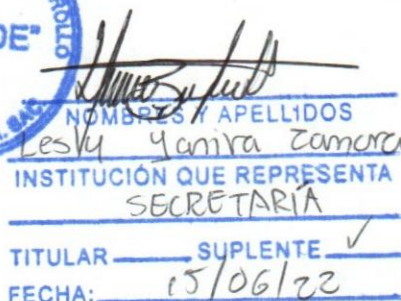 DE"
ROLLO
NOMBRES Y APELLIDOS
Lesly Yanira Zamora
INSTITUCIÓN QUE REPRESENTA
SECRETARÍA
TITULAR SUPLENTE ✓
FECHA: 15/06/22